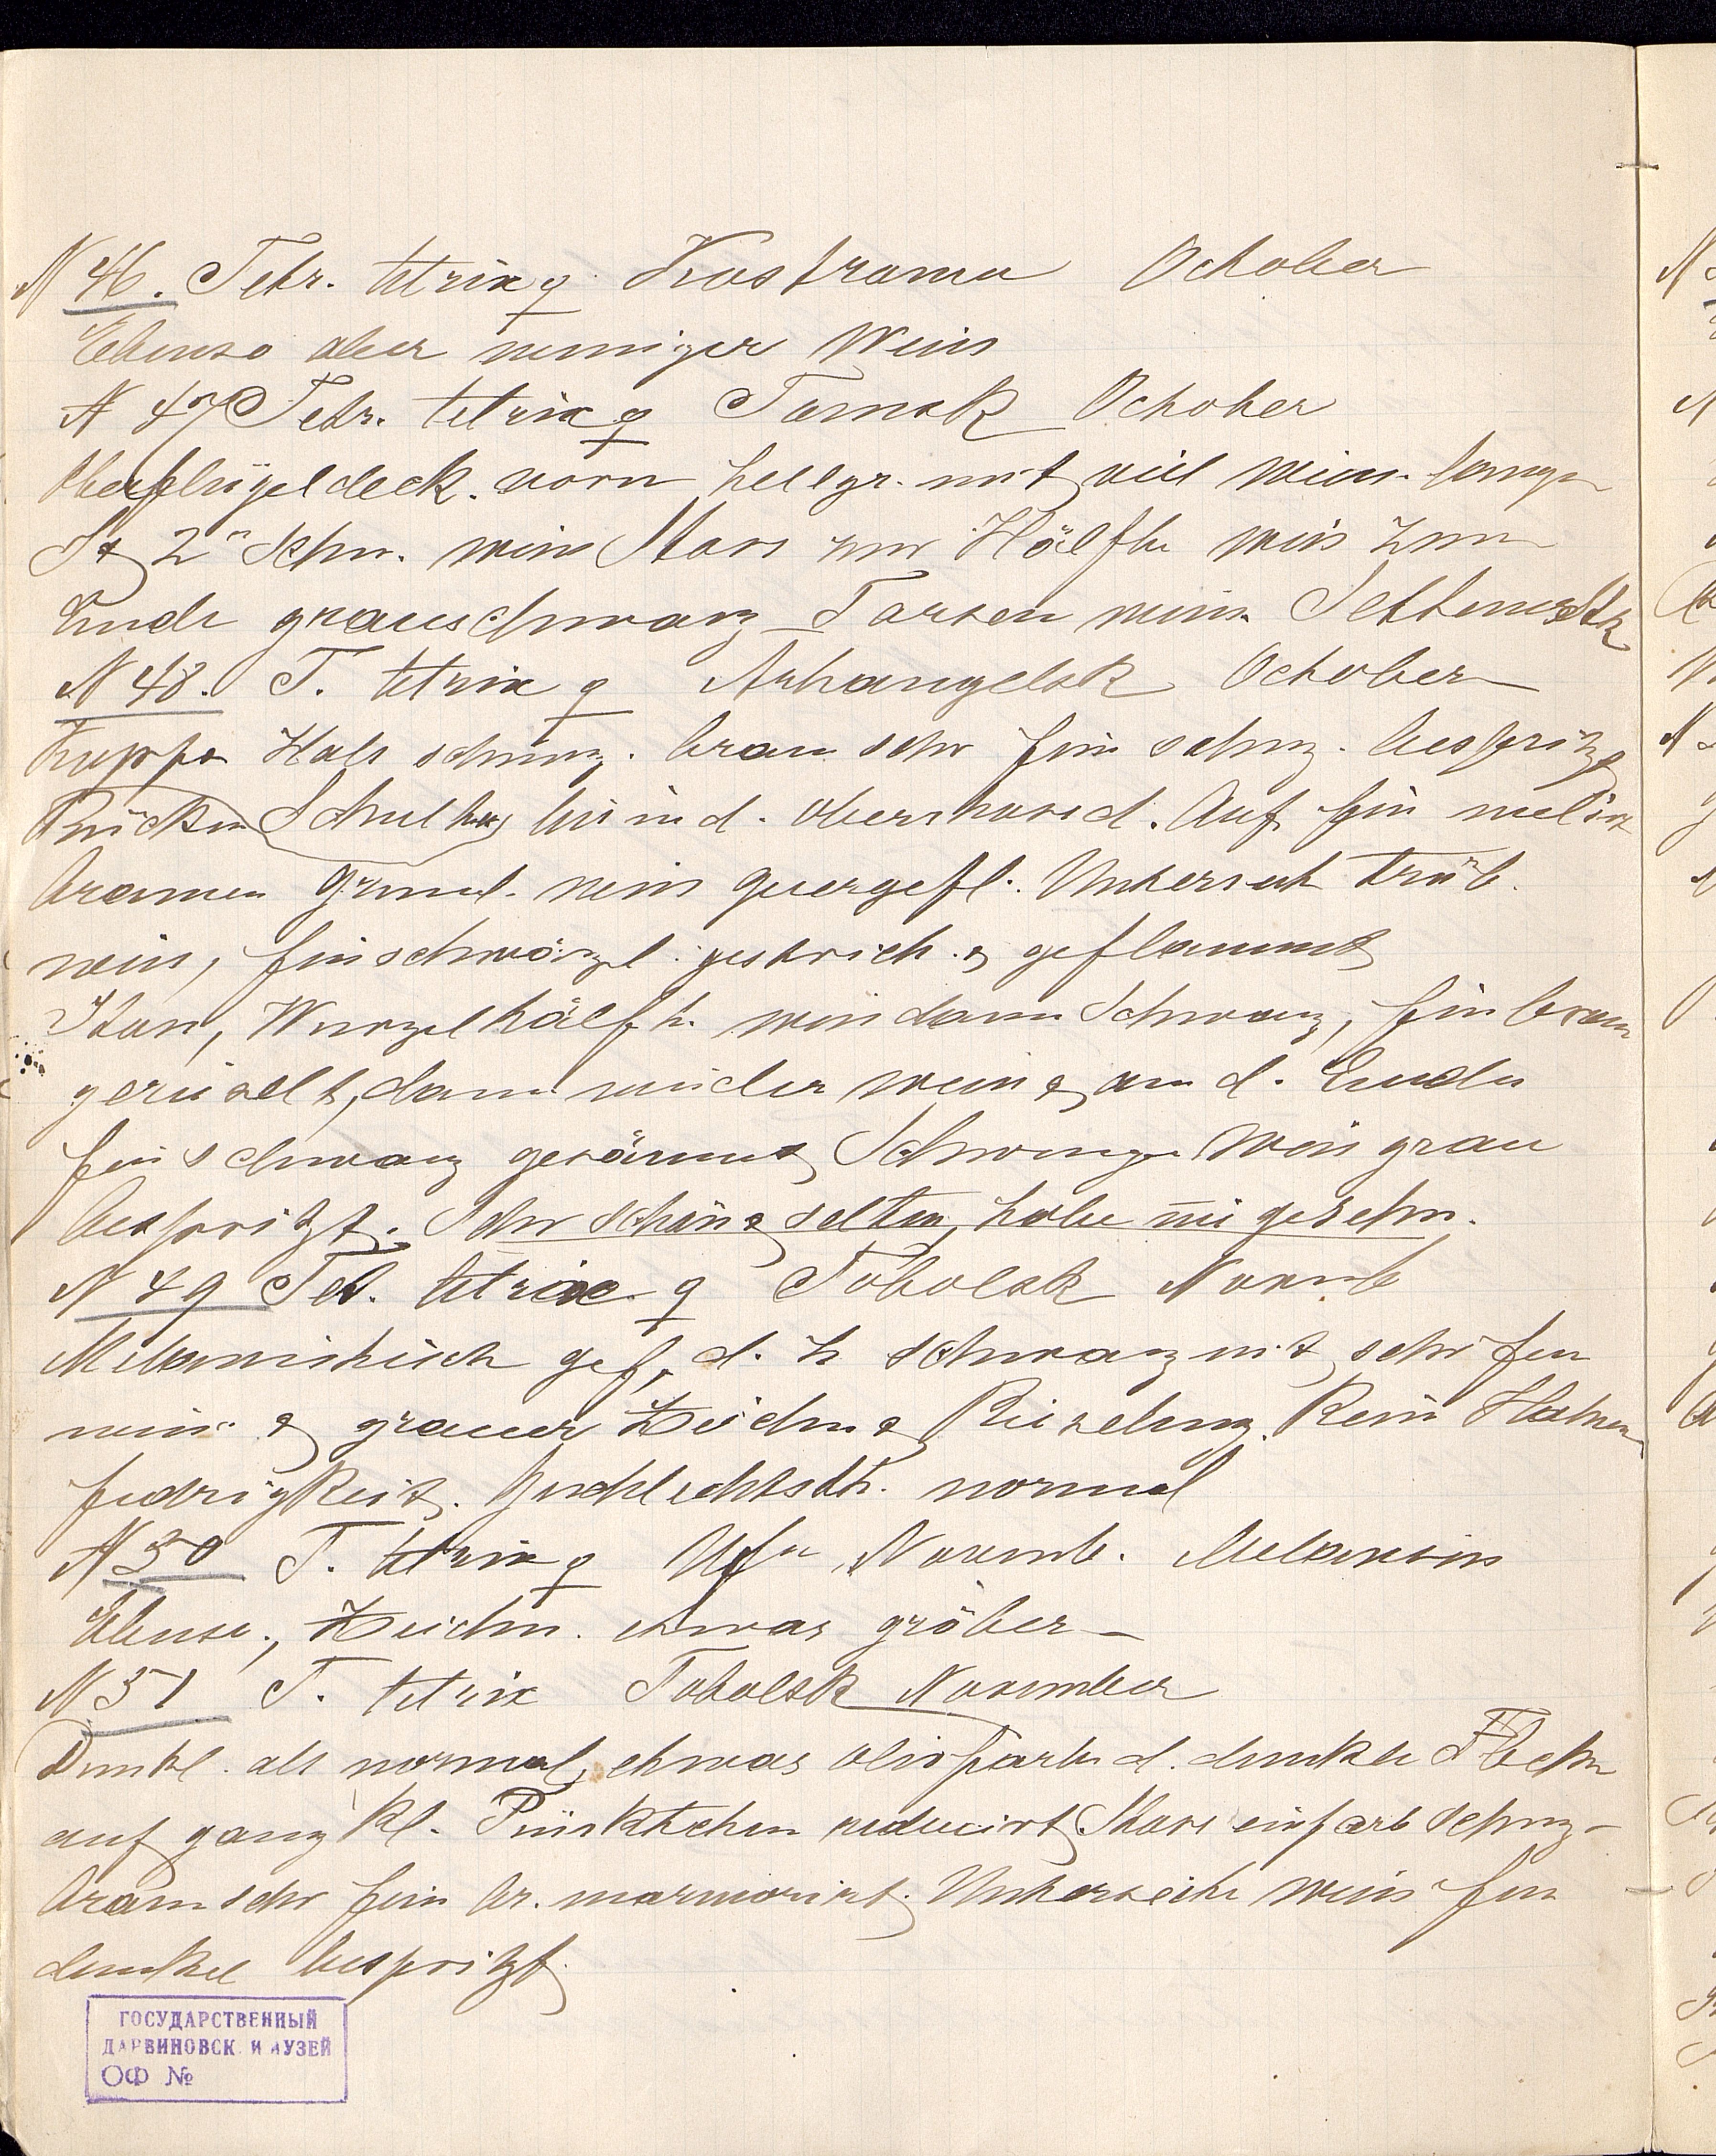 N 46. Tetr. tetrix ♀ Kostroma October
Ebenso aber weniger Weiss
N 47 Tetr. tetrix ♀ Tomsk October
Oberflügeldeck. vorn hellgr. mit viel weiss. langen
2 Schw. weiss Stoss zur Hälfte weiss zum
Ende grauschwarz Tarsen weiss. Seltenes Stk
N 48. T. tetrix ♀ Arhangelsk October
Kopf Hals schwrz. braun sehr fein schwz. bespritzt
Rücken Schulter bis in d. Auf fein melirt
braunen Grund. weiss quergefl. Unterseit trüb.
weiss, feinschwärzl. gestrich. & geflammt
Stoss, Wurzelhälfte weiss dann Schwarz, fein braun
gerieselt, dann wieder weiss & am d. Ende
fein schwarz gesäumt Schwinge Weissgrau
bespritzt. Sehr schön & selten, habe nie gesehn.
N 49 Tet. tetrix ♀ Tobolsk Novemb
Melanistisch gef, d. h schwarz mit sehr fein
weiss & grauer Zeichn & Rieselung. Kein Hahnen
fedrigkeit. Geschlechtsth. normal
N 50 T. tetrix ♀ Ufa Novemb. Melanism
Ebenso., Zeichn. etwas gröber
N 51 T. tetrix Tobolsk November
Dunkl. als normal, etwas olivfarb. d. dunkle Fleck
auf ganz kl. Pünktchen reducirt Stoss einfarb Schwz-
braun sehr fein br. marmorirt. Unterseite weiss fein
dunkel bespritzt
ГОСУДАРСТВЕННЫЙ
ДАРВИНОВСК И МУЗЕЙ
ОФ №